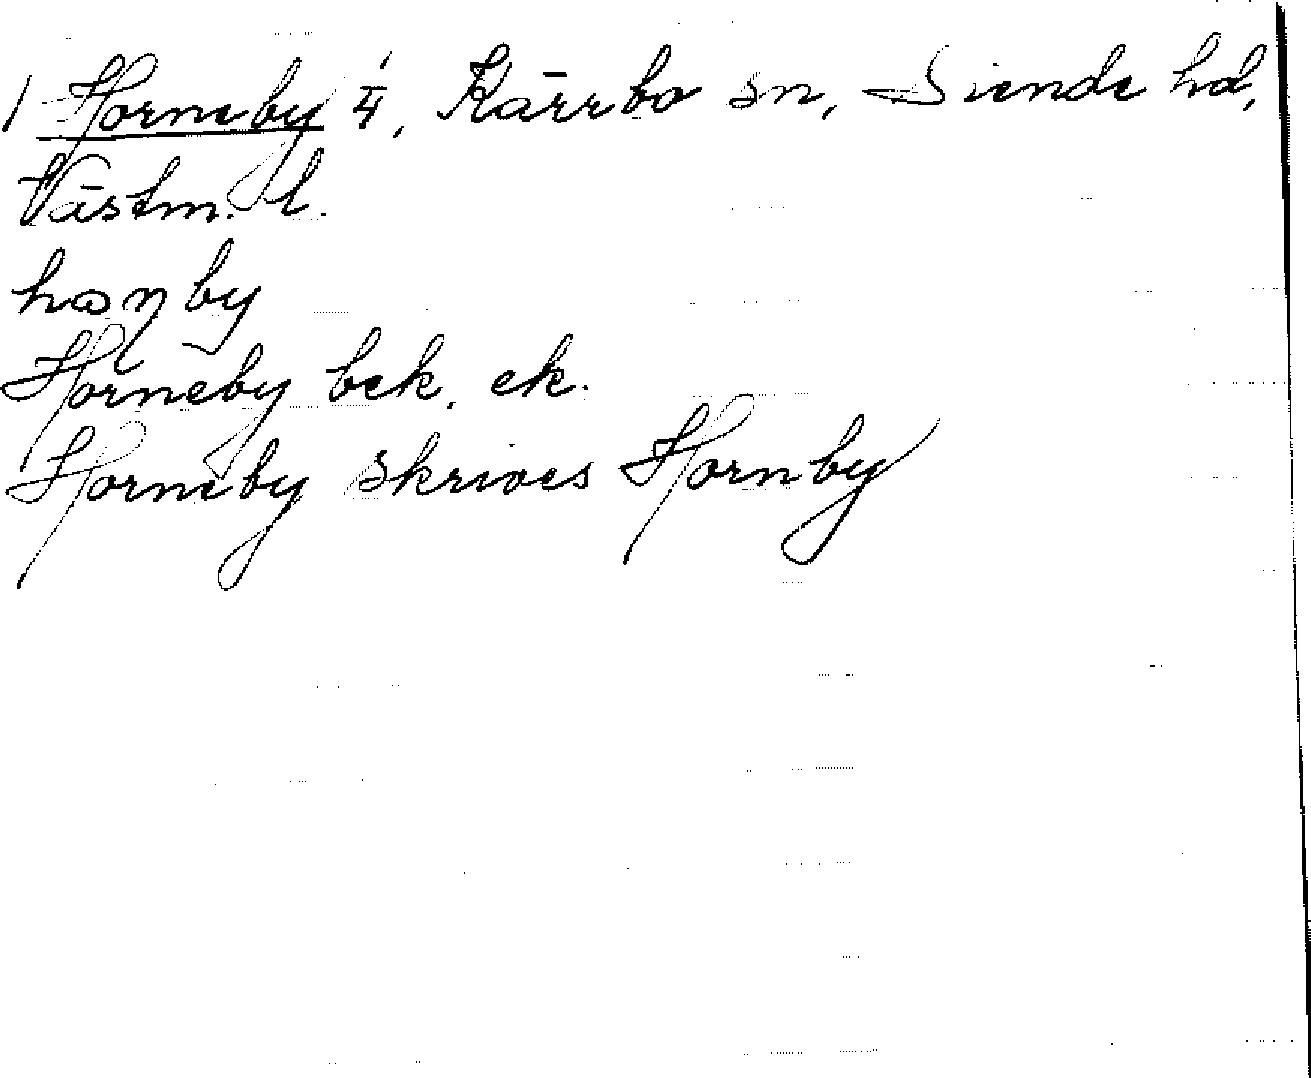 1 Horneby 1/4, Kärrbo sn, Siende hd,
Västm. l.
Horneby bek. ek.
Horneby skrives Hornby